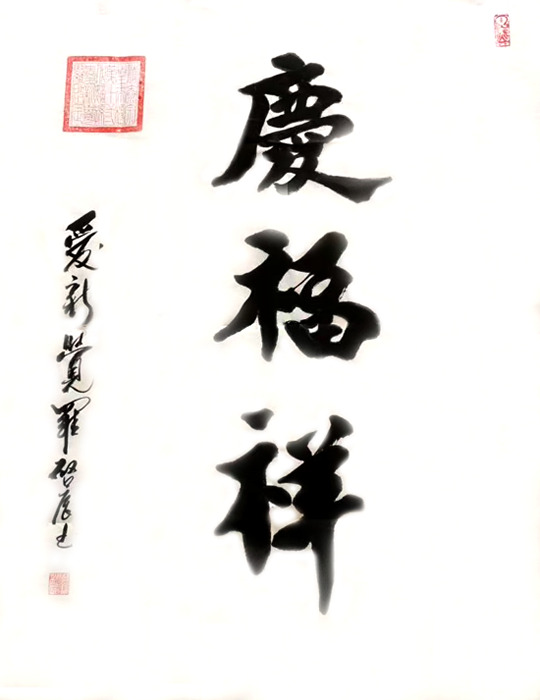 慶福祥
愛新覺羅啓彦书